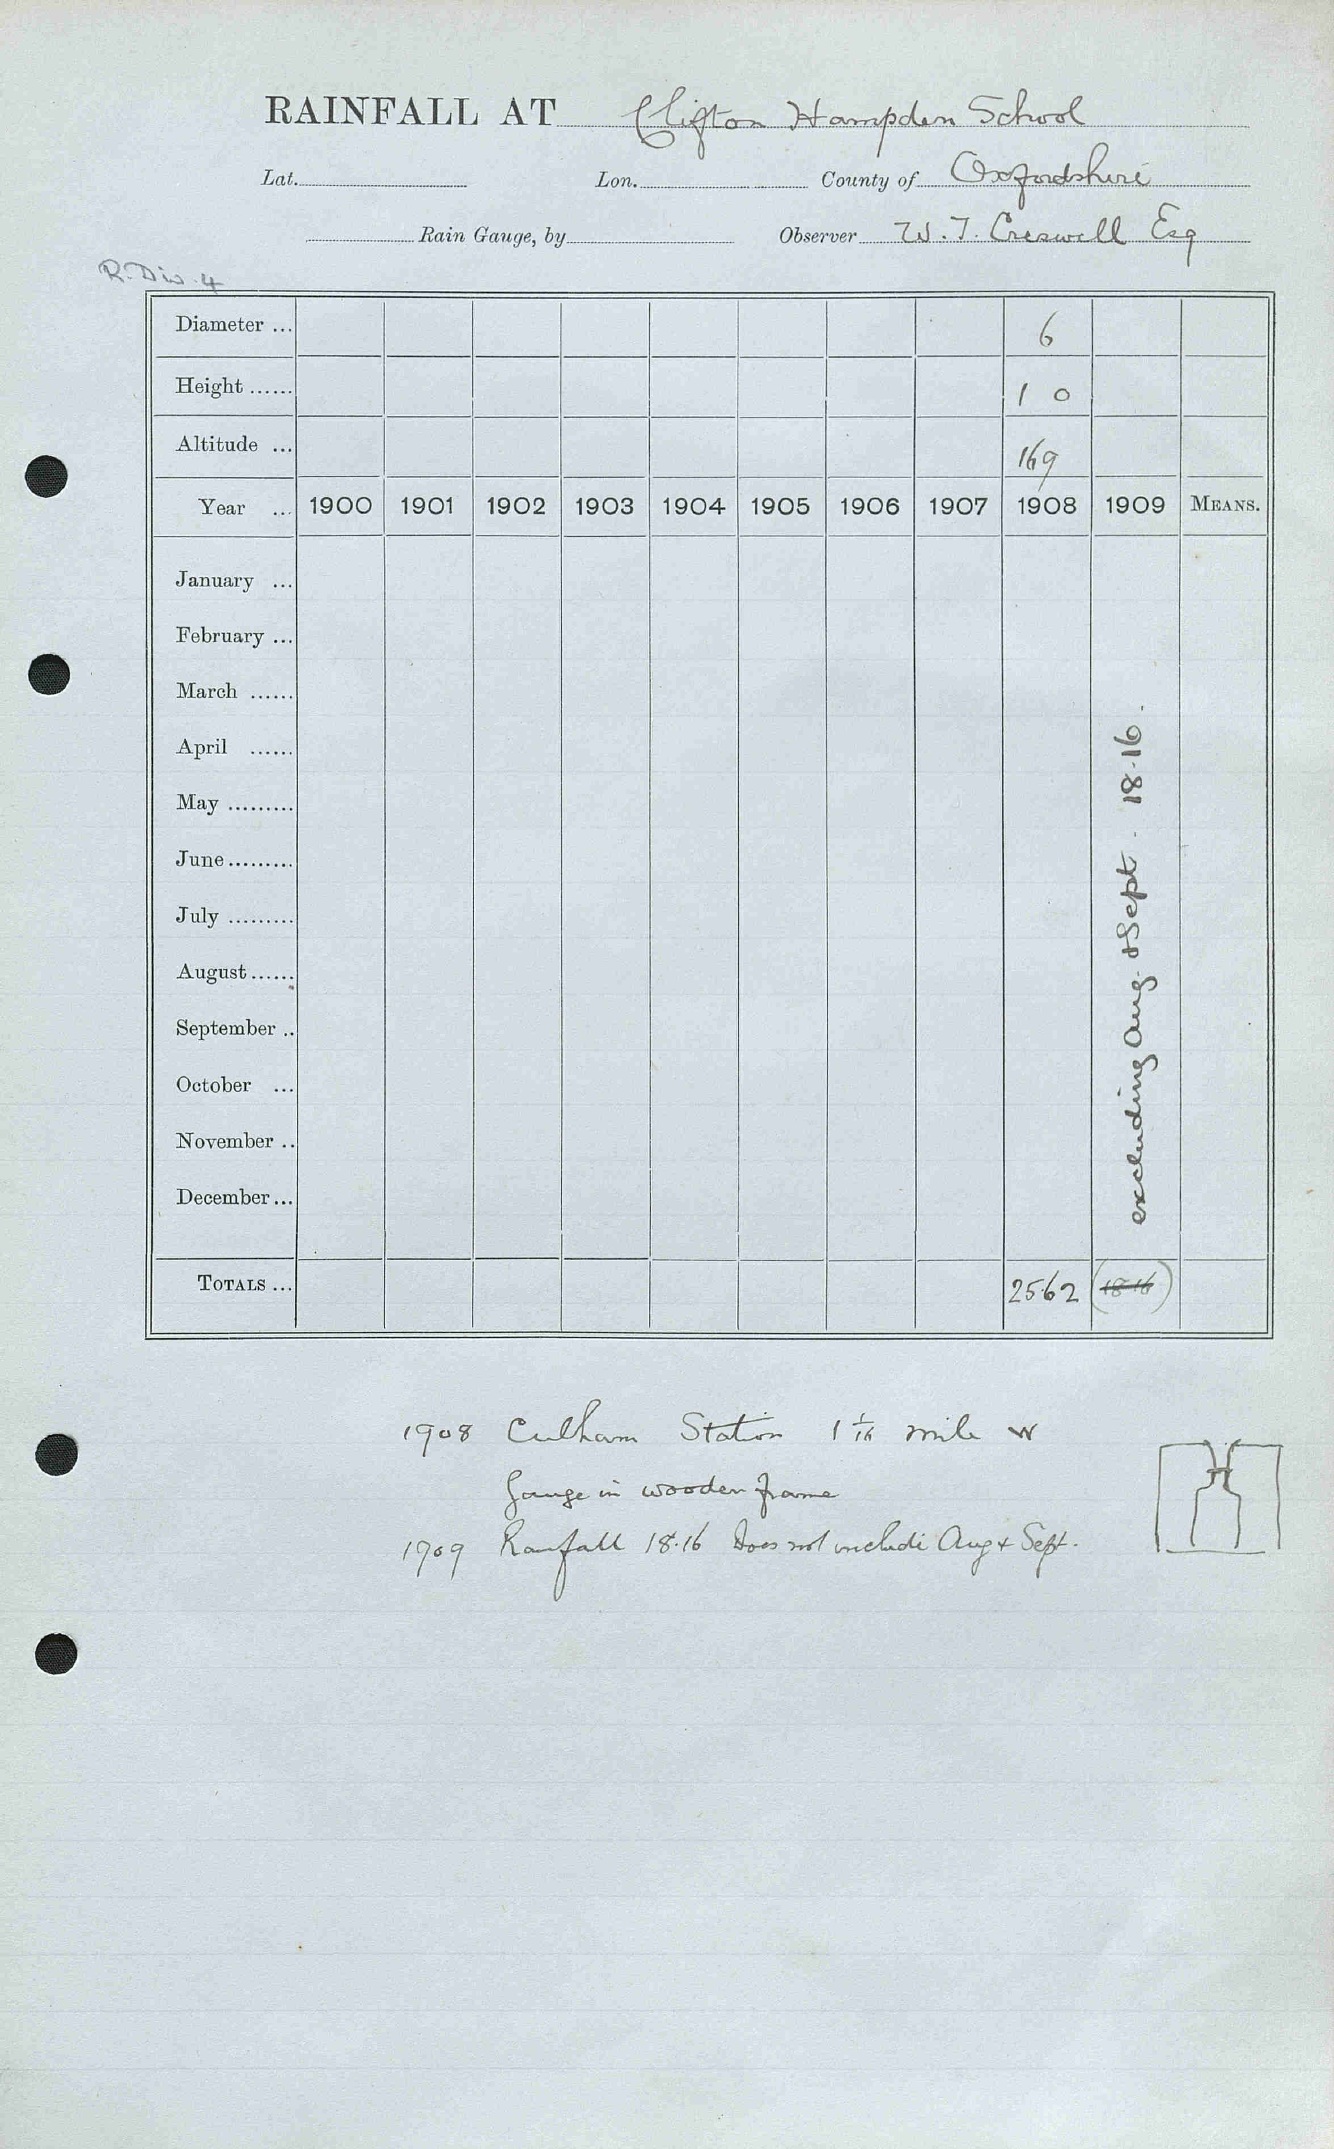 RAINFALL AT Clifton Hampden School
Lat. Lon. County of Oxfordshire
Rain Gauge, by Observer W. T. Creswell Esq
R. Div. 4
Diameter ... 6
Height ...... 1 0
Altitude ... 169
Year ... 1900 1901 1902 1903 1904 1905 1906 1907 1908 1909 MEANS.
January ...
February ...
March ......
April ......
May .........
June .........
July .........
August ......
September ..
October ...
November ..
December ...
excluding Aug. & Sept. 18.16.
TOTALS ... 25.62 (18.16)
1908 Culham Station 1 1/16 mile W
Gauge in wooden frame
1909 Rainfall 18.16 Does not include Aug & Sept.